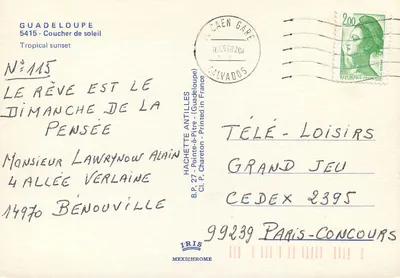 GUADELOUPE
5415 - Coucher de soleil
Tropical sunset
N° 115
LE RÊVE EST LE
DIMANCHE DE LA
PENSÉE
MONSIEUR LAWRYNOW ALAIN
4 ALLÉE VERLAINE
14970 BÉNOUVILLE
HACHETTE ANTILLES
B.P. 27 - Pointe-à-Pitre - (Guadeloupe)
Cl. P. Chareton - Printed in France
IRIS
MEXICHROME
CAEN GARE
CALVADOS
2,00
TÉLÉ - LOISIRS
GRAND JEU
CEDEX 2395
99239 PARIS-CONCOURS